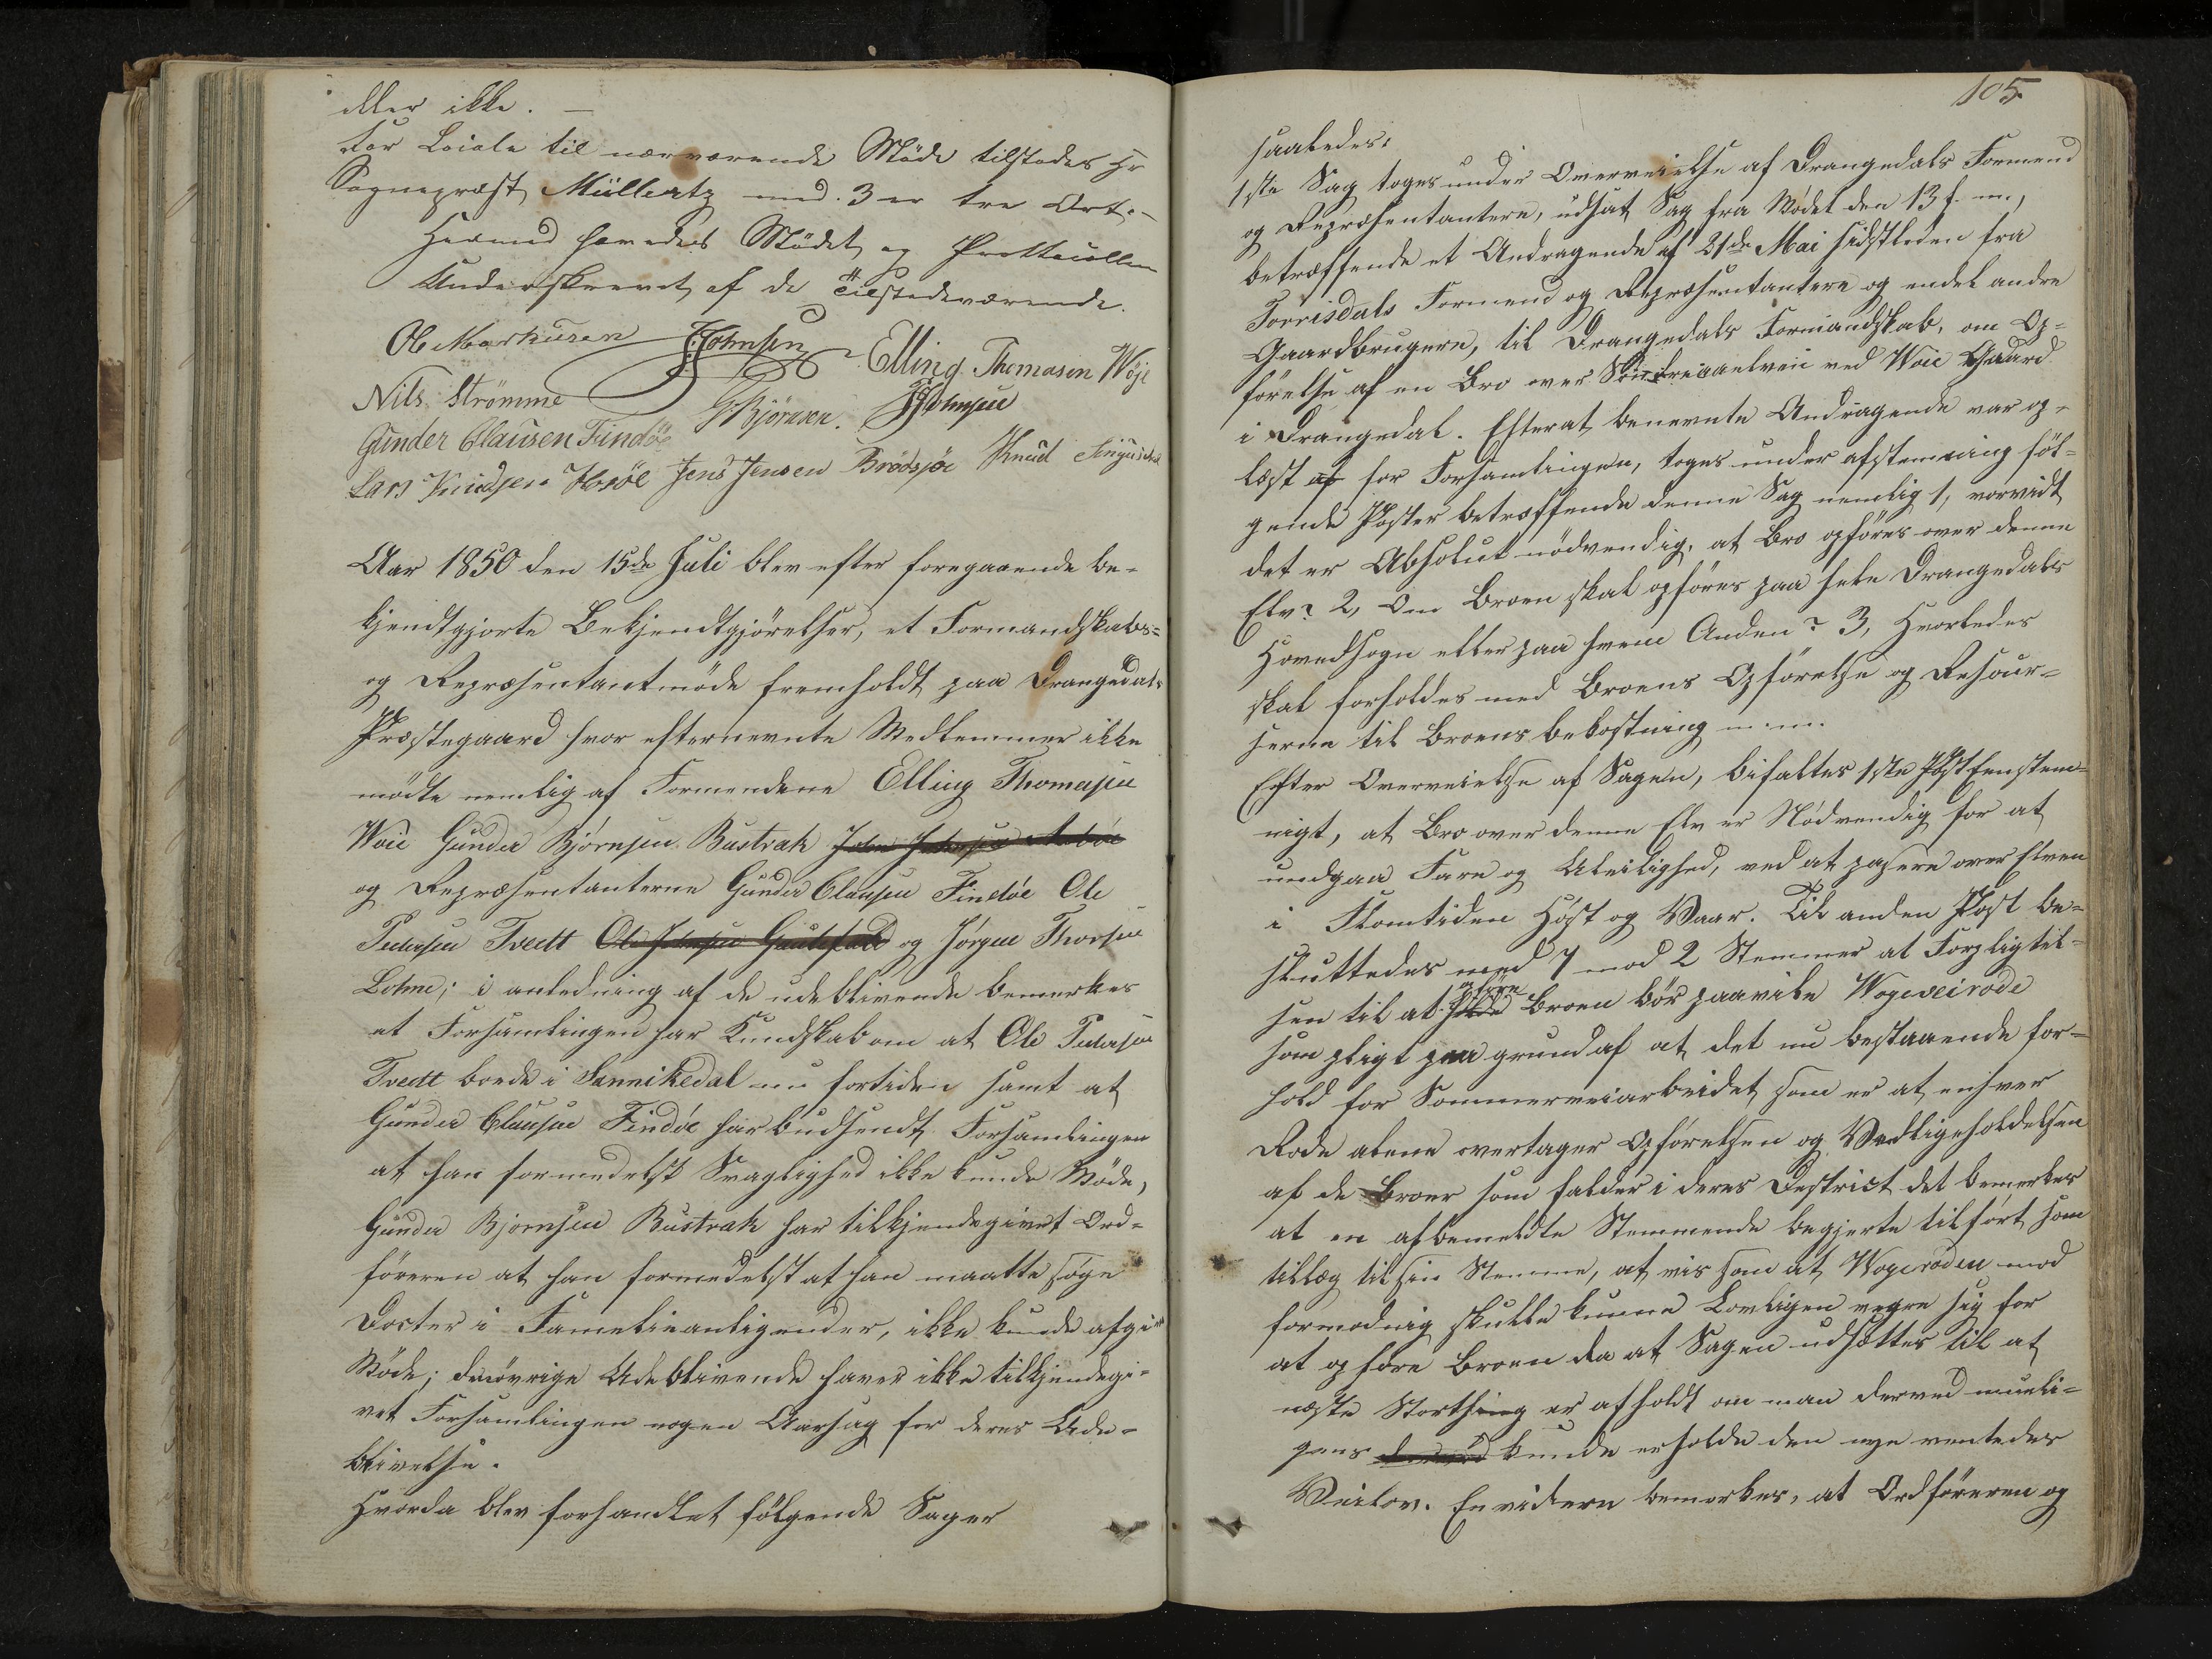 eller ikke. —
For Locale til nærværende Møde tilstodes Hr
Sognepræst Müllertz med. 3 er tre Ort. –
Hermed hævedes Mødet og Prottecollen
Underskrevet af de Tilstedeværende.
Ole Markusen J. Johnsen Elling Thomasen Wöje
Nils Strömme G Bjørnsen. JJohnsen
Gunder Clausen Findöe
Lars Knudsen Jens Jensen Brødsjøe Knud
Aar 1850 den 15de Juli blev efter foregaaende be-
kjendtgjorte Bekjendtgjörelser, et Formandskabs=
og Repræsentantmöde fremholdt paa Drangedals
Præstegaard hvor efternevnte Medlemmer ikke
mödte nemlig af Formendene Elling Thomesen
Woie Gunder Björnsen Bustrak
og Repræsentanterne Gunder Clausen Findöe Ole
Pedersen Tvedt Ole Johnsen Gautefald og Jörgen Thorsen
Lohne; i anledning af de udeblivende bemerkes
at Forsamlingen har Kundskab om at Ole Pedersen
Tvedt boede i Sannikedal nu fortiden samt at
Gunder Clausen Findöe har budsendt Forsamlingen
at han formedelst Svaglighed ikke kunde Möde,
Gunder Bjornsen Bustrak har tilkjendegivet Ord=
föreren at han formedelst at han maatte söge
Docter i Familieanligender, ikke kunde afgi
Möde; de övrige Udeblivende haver ikke tilkjendegi=
vet Forsamlingen nogen Aarsag for deres Ude-
blivelse.
Hvorda blev forhandlet fölgende Sager
105
saaledes:
1ste Sag toges under Overveielse af Drangedals Formend
og Repræsentantere, udsat Sag fra Mødet den 13 f. m.,
betræffende et Andragende af 21de Mai sidstleden fra
Torrisdals Formend og Repræsentantere og endel andre
Gaardbrugere, til Drangedals Formandskab, om Op=
förelse af en Bro over ved Woie Gaard
i Drangedal. Efterat benevnte Andragende var op-
læst af for Forsamlingen, toges under afstemning föl=
gende Poster betræffende denne Sag nemlig 1, vorvidt
det er Absolut nödvendig, at Bro opföres over denne
Elv? 2, Om Broen skal opföres paa hele Drangedals
Hovedsogn eller paa hvem Anden? 3, Hvorledes
skal forholdes med Broens Opförelse og Resour=
serne til Broens bekostning m. m.
Efter Overveielse af Sagen, bifaltes 1ste Post Eenstem=
nigt, at Bro over denne Elv er Nödvendig for at
undgaa Fare og Uleilighed, ved at pasere over Elven
i Flomtiden Höst og Vaar. Til anden Post be=
sluttedes med 7 mod 2 Stemmer at Forpligtel=
opföre
sen til at Broen bör paavile Wogeveirode
som pligt paa grund af at det nu bestaaende for=
hold for Sommerveiarbeidet som er at enhver
Rode alene overtager Opförelsen og Vedligeholdelsen
af de Broer som falder i deres Destrict det bemerkes
at en af bemeldte Stemmende begjerte tilfört som
tillæg til sin Stemme, at vis som at Wogeroden mod
formodnig skulle kunne Lovligen vegre sig for
at opføre Broen da at Sagen udsættes til at
neste Storthing er afholdt om man derved mueli=
gens derved kunde erholde den nye ventedes
Veilov. Envidere bemerkes, at Ordföreren og